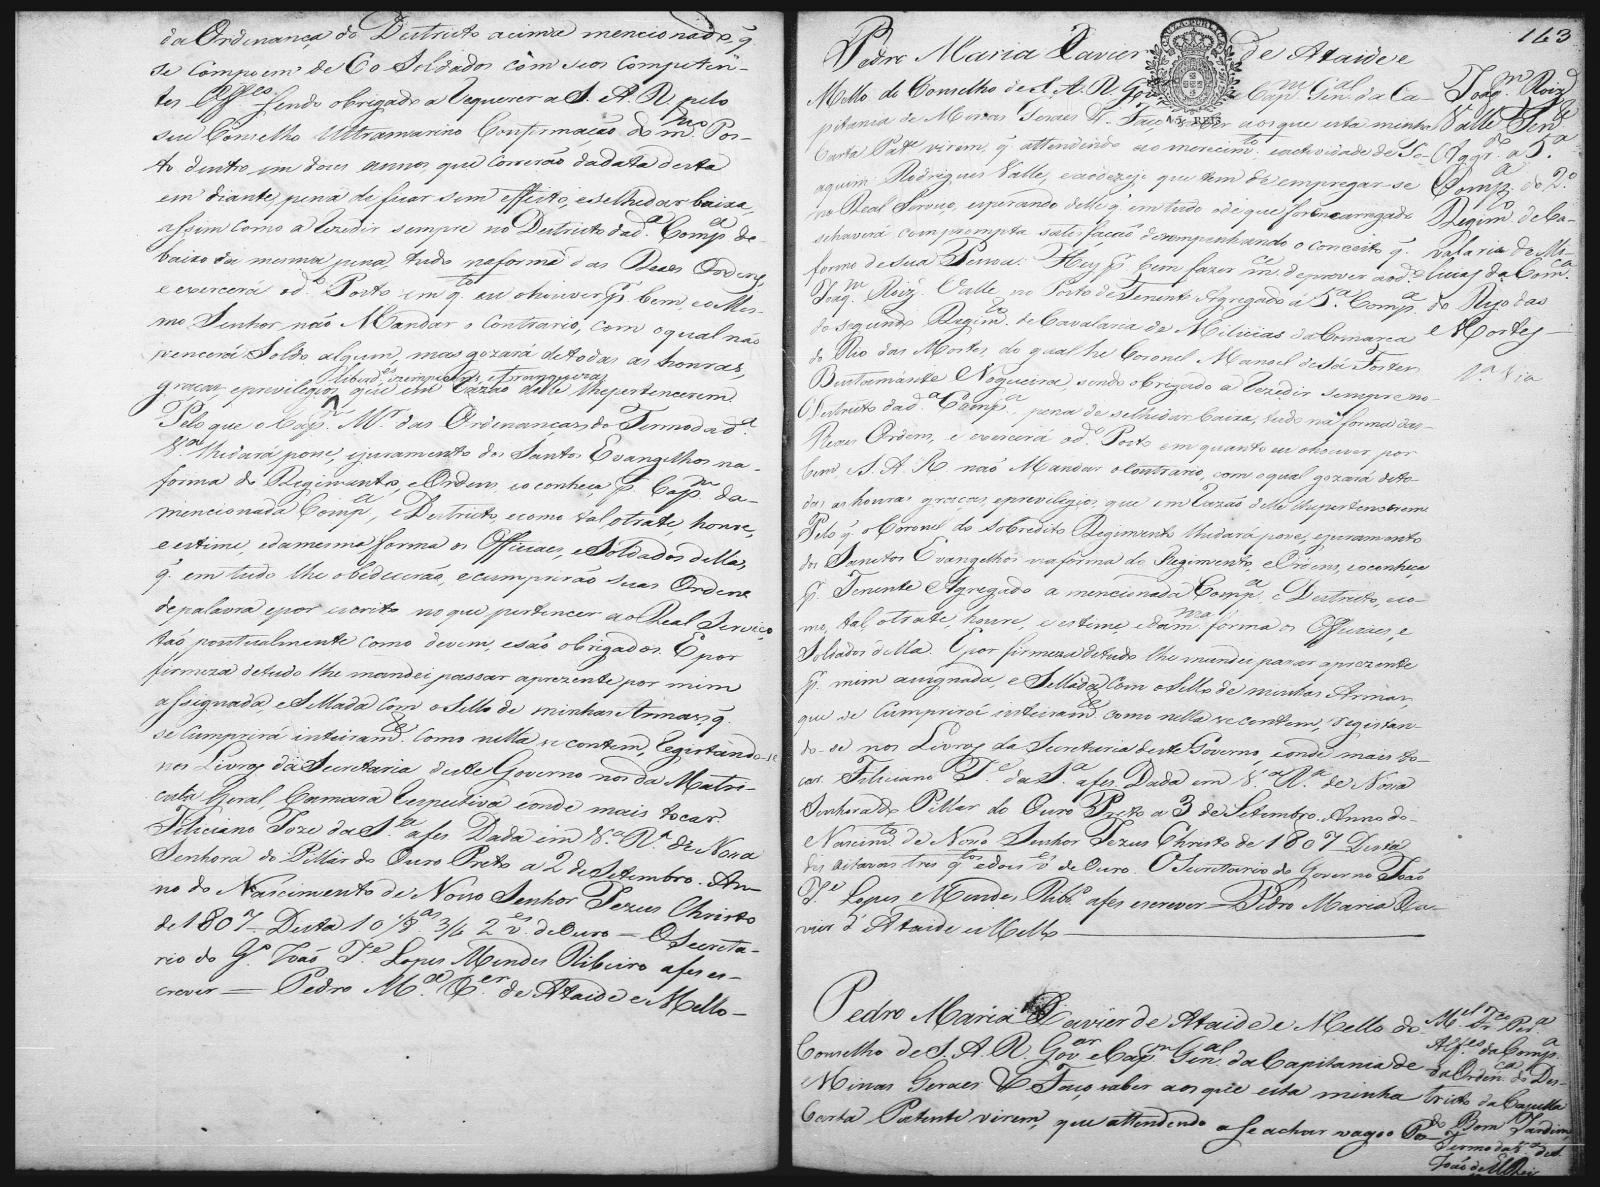 da Ordenança do Destricto acima mencionado, q̃
se compoem de 60 Soldados com seos competen-
tes Off.es sendo obrigado a requerer a S. A. R. pelo
seu Conselho Ultramarino Confirmação do m.mo Pos-
to dentro em dous annos, que correrão da data desta
em diante, pena de ficar sem effeito, e se lhe dar baixa,
assim como a rezedir sempre no Destricto da d.a Comp.a de-
baixo da mesma pena, tudo na forma das Reaes Ordens,
e exercerá o d.o Posto em q.to eu o houver p.r bem, e o Mes-
mo Senhor não Mandar o contrario, com o qual não
vencerá Soldo algum, mas gozará de todas as honras,
liberd.es, izempçoens, e franquezas
graças, e previlegios, que em razão delle lhe pertencerem.
Pelo que o Cap.m M.r das Ordenanças do Termo da d.a
V.a lhe dará posse, e juramento dos Santos Evangelhos na
forma do Regimento, e Ordens, e o conheça p.r Cap.m da
mencionada Comp.a, e Destricto, e como tal o trate, honre,
e estime, e da mesma forma os Officiaes, e Soldados della,
q̃ em tudo lhe obedecerão, e cumprirão suas Ordens
de palavra e por escrito no que pertencer ao Real Serviço
tão pontualmente como devem, e são obrigados. E por
firmeza de tudo lhe mandei passar a prezente por mim
assignada, e Sellada com o Sello de minhas Armas, q̃
se cumprirá inteiram.e como nella se contem, registando-se
nos Livros da Secretaria deste Governo nos da Matri-
cula Geral, Camara respectiva e onde mais tocar.
Feliciano Joze da S.a a fes Dada em V.a R.a de Nossa
Senhora do Pillar do Ouro Preto a 2 de Setembro. An-
no do Nascimento de Nosso Senhor Jezus Christo
de 1807. Desta 10/8.as 3/4 2 v.es de Ouro = O Secreta-
rio do G.o João J.e Lopes Mendes Ribeiro a fes es-
crever = Pedro M.a X.er de Ataide e Mello -
163
Pedro Maria Xavier de Ataide e
Mello do Conselho de S. A. R. Gov Cap.m Gen.al da Ca-
pitania de Minas Geraes &. Faço saber aos que esta minha
Carta Pat.e virem, q̃ attendendo ao merecim.to e actividade de Jo-
aquim Rodrigues Valle, e ao dezejo que tem de empregar-se
no Real Serviço, esperando delle q̃ em tudo o de que for encarregado
se haverá com prompta satisfação dezempenhando o conceito q̃
formo de sua Pessoa: Hey p.r bem fazer m.ce de prover ao d.o
Joaq.m Roiz' Valle no Posto de Tenente Agregado á 5.a Comp.a
do segundo Regim.to de Cavalaria de Milicias da Comarca
do Rio das Mortes, do qual he Coronel Manoel de Sá Fortes
Bustamante Nogueira, sendo obrigado a rezedir sempre no
Destricto da d.a Comp.a, pena de se lhe dar baixa, tudo na forma das
Reaes Ordens, e exercerá o d.o Posto em quanto eu o houver por
bem, e S. A. R. não Mandar o contrario, com o qual gozará de to-
das as honras graças, e previlegios, que em razão delle lhe pertencerem.
Pelo q̃ o Coronel do sobredito Regimento lhe dará posse, e juramento
dos Sanctos Evangelhos na forma do Regimento, e Ordens, e o conheça
p.r Tenente Agregado a mencionada Comp.a e Destricto, e co-
mo tal, o trate, honre, e estime, e da m.ma forma os Officiaes, e
Soldados della. E por firmeza de tudo lhe mandei passar a prezente
p.r mim assignada, e Sellada com o Sello de minhas Armas,
que se cumprirá inteiram.e como nella se contem, registan-
do-se nos Livros da Secretaria deste Governo, e onde mais to-
car. Feliciano J.e da S.a a fes. Dada em V.a R.a de Nossa
Senhora do Pillar do Ouro Preto a 3 de Setembro. Anno do
Nascim.to de Nosso Senhor Jezus Christo de 1807. Desta
des oitavas tres q.tos e dois v.es de Ouro. O Secretario do Governo João
J.e Lopes Mendes Rib.o a fes escrever = Pedro Maria Xa-
vier d' Ataide e Mello
Joaq.m Roiz
Valle Ten.e
Aggr.do a 5.a
Comp.a do 2.o
Regim.to de Ca-
valaria de Mi-
licias da Com.ca
do Rio das
Mortes
1.a Via
Pedro Maria Xavier de Ataide e Mello do
Conselho de S. A. R. Gov.ar e Cap.m Gen.al da Capitania de
Minas Geraes & Faço saber aos que esta minha
Carta Patente virem, que attendendo a se achar vago o Pos-
Alf.es da Comp.a
da Orden.ca do Des-
tricto da Capella
do Bom Jardim,
Termo da V.a de S.
João de El Rei